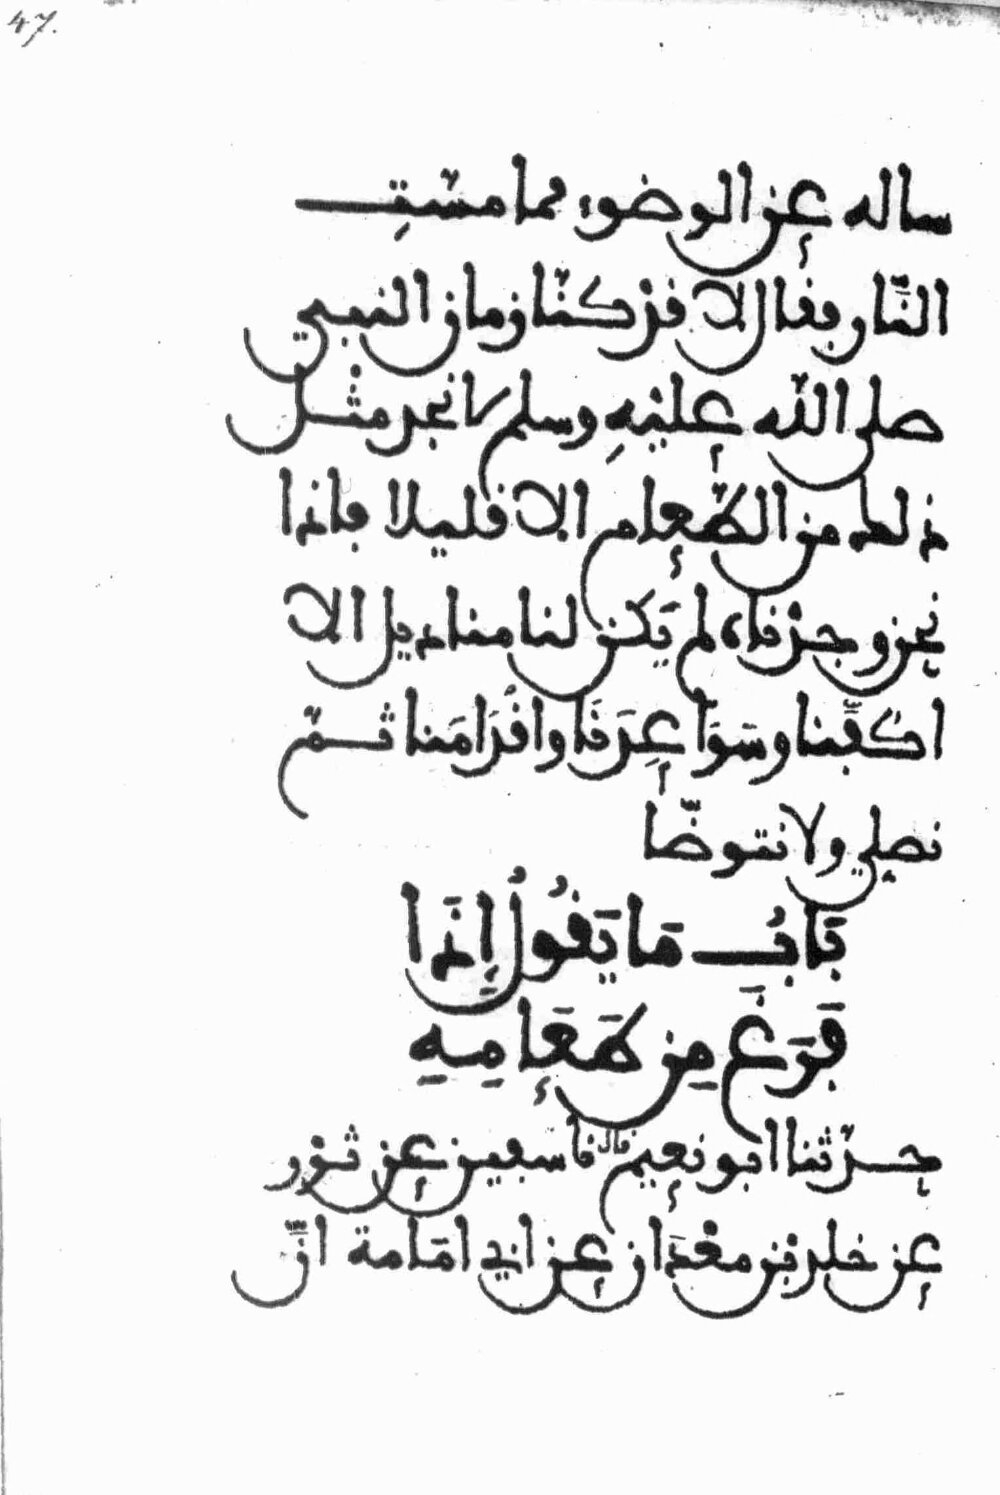 47.
ساله عن الوضوء مما مست
النار فقال لا قد كنا زمان النبي
صلى الله عليه وسلم لا نجد مثل
ذلك من الطعام الا قليلا فاذا
نحن وجدناه لم يكن لنا مناديل الا
اكفنا وسواعدنا واقدامنا ثم
نصلي ولا نتوضا
بَابُ مَا يَقُولُ إِذَا
فَرَغَ مِن طَعَامِهِ
حدثنا ابو نعيم قال نا سفين عن ثور
عن خلد بن معدان عن ابي امامة ان